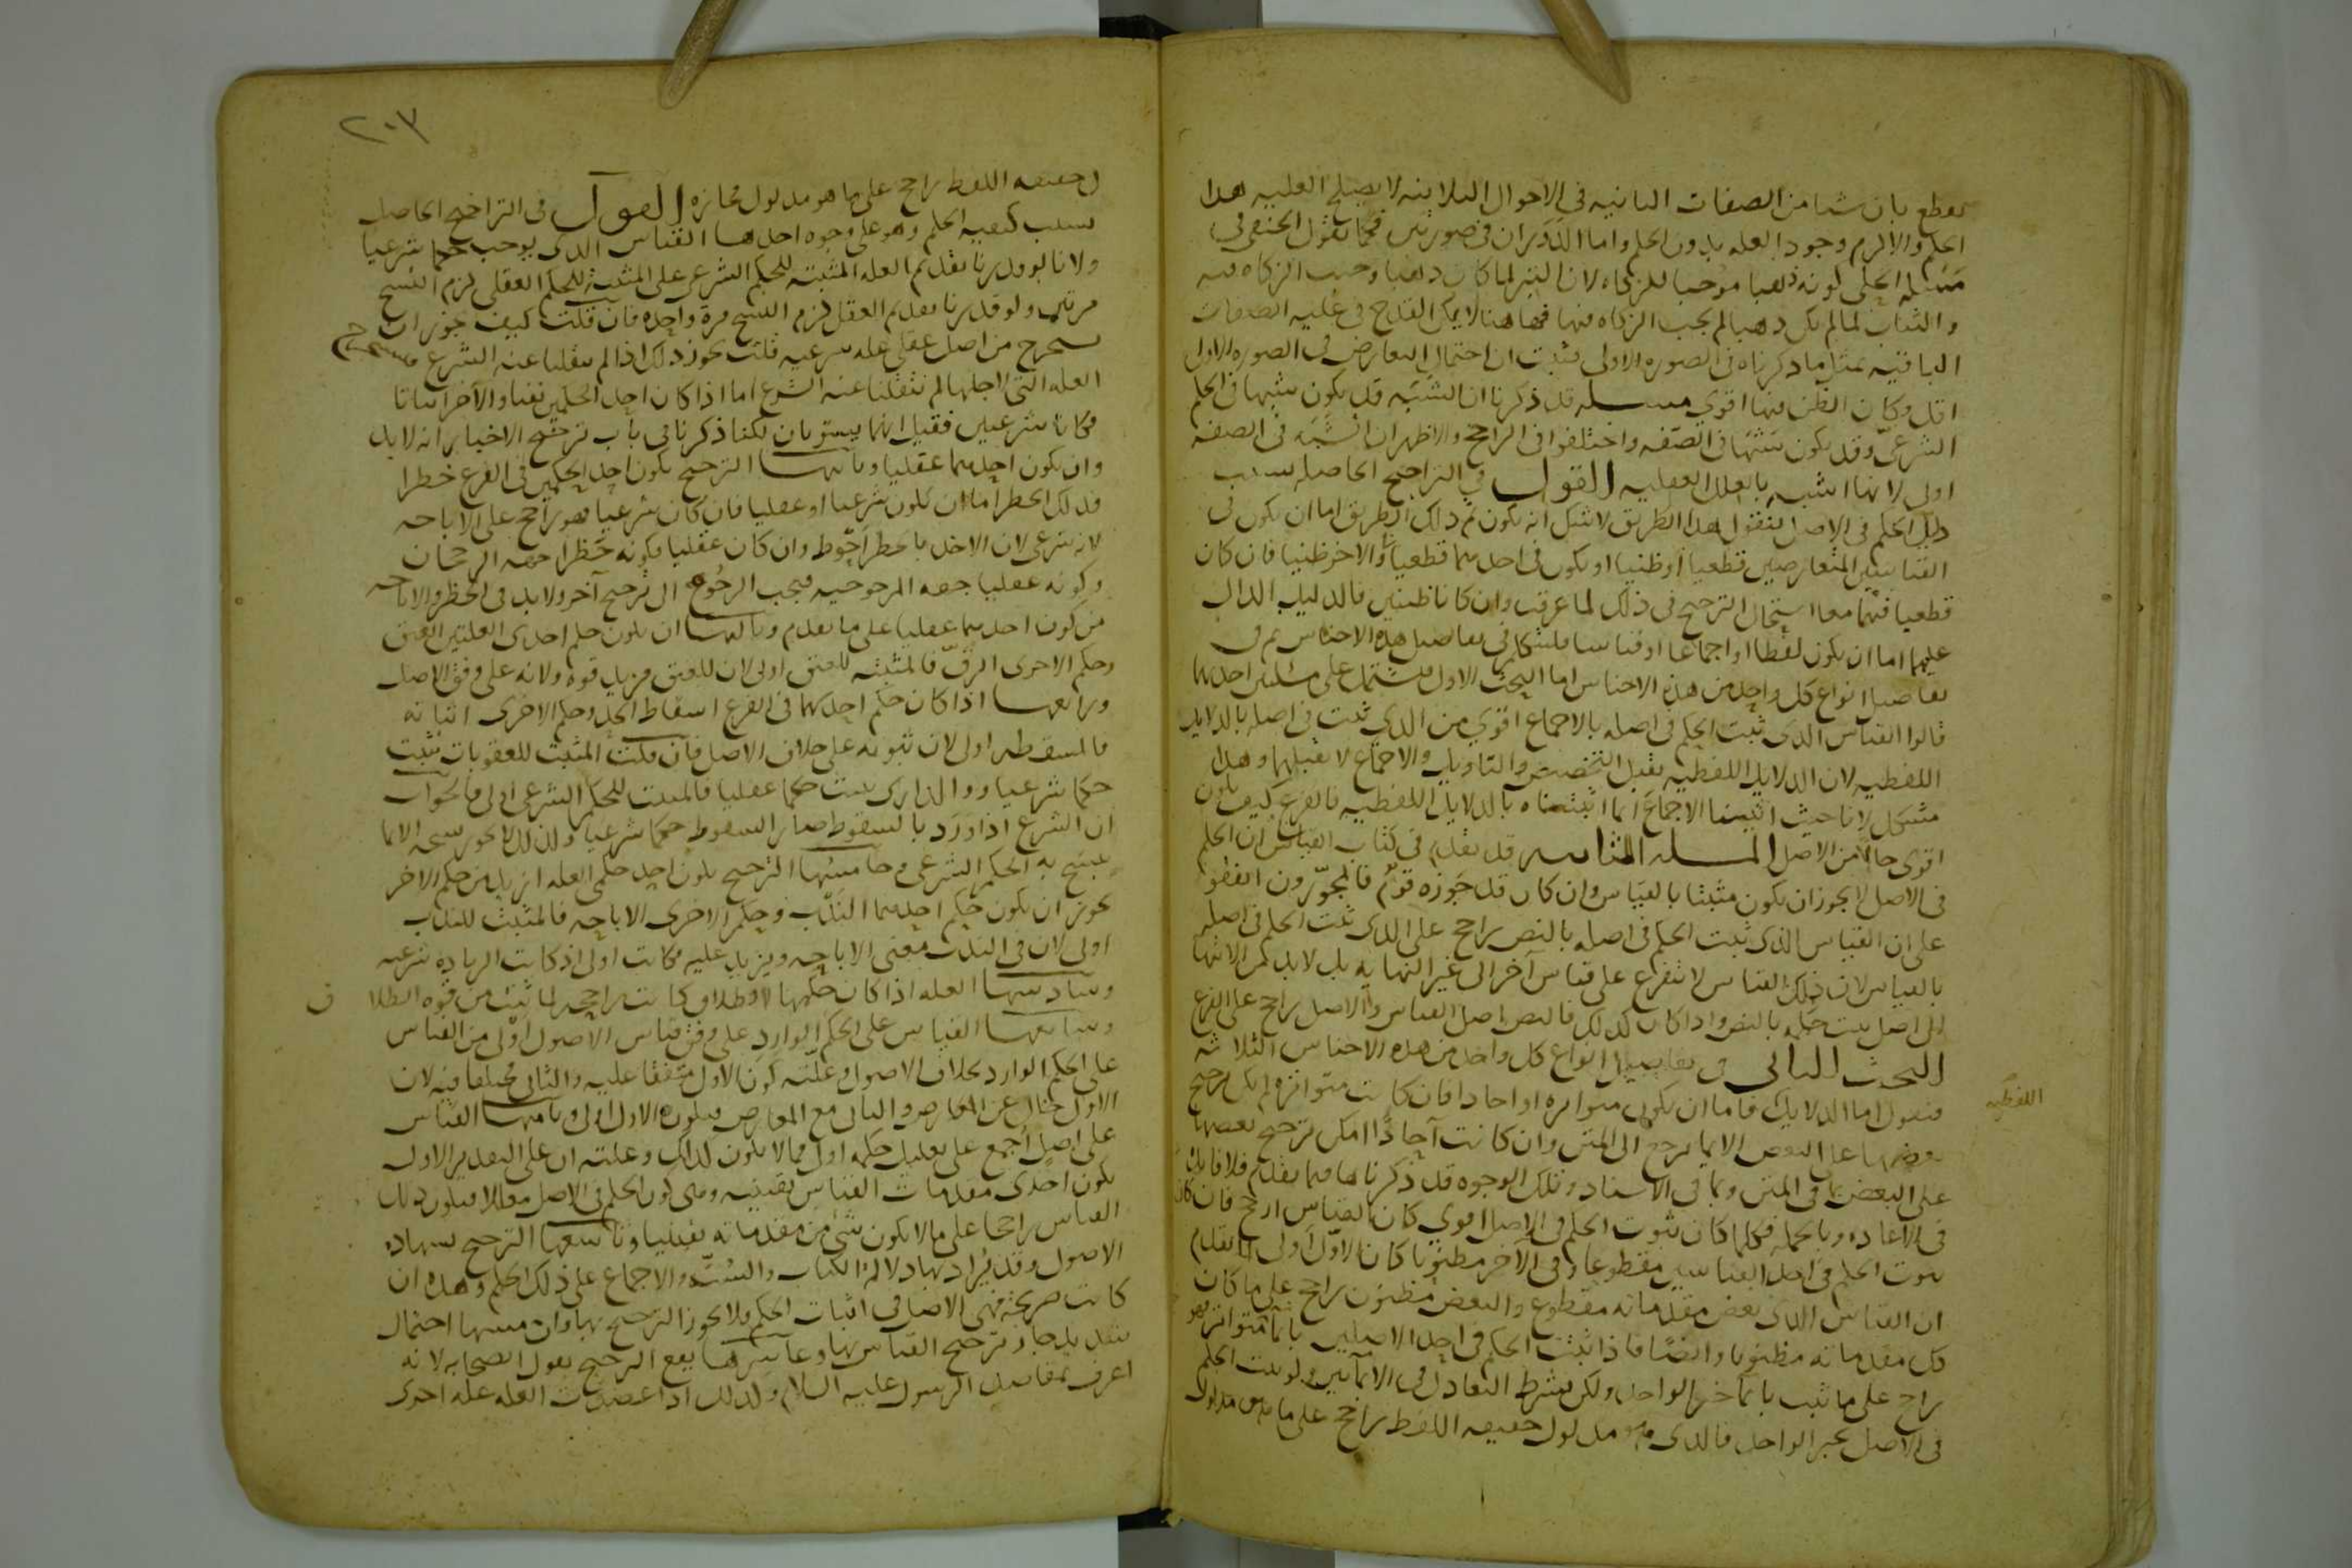 نقطع بان شيا من الصفات الباقيه في الاحوال الثلاثه لا يصلح للعليه لهذا
الحكم والا لزم وجود العله بدون الحكم واما الدوران في صورتين فكما نقول الحنفي في
مسله الحلى كونه ذهبا موجبا للزكاه لان التبر لما كان ذهبا وجبت الزكاه فيه
والثياب لما لم يكن ذهبا لم يجب الزكاه فيها فهاهنا لا يمكن القدح في عليه الصفات
الباقيه بمثل ما ذكرناه في الصوره الاولى فثبت ان احتمال التعارض في الصوره الاولى
اقل وكان الظن فيها اقوى مسله قد ذكرنا ان الشبه قد يكون شبها في الحكم
الشرعي وقد يكون شبها في الصفه واختلفوا في الراجح والاظهر ان الشبه في الصفه
اولى لانها اشبه بالعلل العقليه القول في التراجيح الحاصله بسبب
دليل الحكم في الاصل لنقول هذا الطريق لا شك انه يكون ثم ذلك الطريق اما ان يكون في
القياسين المتعارضين قطعيا او ظنيا او يكون في احدهما قطعيا والاخر ظنيا فان كان
قطعيا فيهما معا استحال الترجيح في ذلك لما عرفت وان كانا ظنيين فالدليل الدال
عليهما اما ان يكون لفظا او اجماعا او قياسا فلنتكلم في تفاصيل هذه الاجناس ثم في
تفاصيل انواع كل واحد من هذه الاجناس اما البحث الاول فيشتمل على مسلتين احدهما
قالوا القياس الذي ثبت الحكم في اصله بالاجماع اقوى من الذي ثبت في اصله بالدلايل
اللفظيه لان الدلايل اللفظيه يقبل التخصيص والتاويل والاجماع لا يقبلهما وهذا
مشكل لانا حيث اثبتنا الاجماع انما اثبتناه بالدلايل اللفظيه فالفرع كيف يكون
اقوى حالا من الاصل المسله الثانيه قد تقدم في كتاب القياس ان الحكم
في الاصل لا يجوز ان يكون مثبتا بالقياس وان كان قد جوزه قوم فالمجوزون اتفقوا
على ان القياس الذي ثبت الحكم في اصله بالنص راجح على الذي ثبت الحكم في اصله
بالقياس لان ذلك القياس لا يتفرع على قياس آخر الى غير النهايه بل لابد من الانتها
الى اصل يثبت حكمه بالنص واذا كان كذلك فالنص اصل القياس والاصل راجح على الفرع
البحث الثاني في تفاصيل انواع كل واحد من هذه الاجناس الثلاثه
فنقول اما الدلايل فاما ان يكون متواتره او احادا فان كانت متواتره لم يكن ترجيح
اللفظيه
بعضها على البعض الا بما يرجع الى المتن وان كانت آحادا امكن ترجيح بعضها
على البعض بما في المتن وبما في الاسناد وتلك الوجوه قد ذكرناها فيما تقدم فلا فايده
في الاعاده وبالجمله فكلما كان ثبوت الحكم في الاصل اقوى كان القياس ارجح فان كان
ثبوت الحكم في احد القياسين مقطوعا وفي الآخر مظنونا كان الاول اولى لما تقدم
ان القياس الذي بعض مقدماته مقطوع والبعض مظنون راجح على ما كان
كل مقدماته مظنونا وايضا فاذا ثبت الحكم في احد الاصلين بالمتواتر فهو
راجح على ما ثبت بالآخر الواحد ولكن بشرط التعادل في الاثباتين ولو ثبت الحكم
في الاصل بخبر الواحد فالذي هو مدلول حقيقه اللفظ راجح على ما هو مدلول
٢٠٣
وحقيقه اللفظ راجح على ما هو مدلول مجازه القول في التراجيح الحاصله
بسبب كيفيه الحكم وهو على وجوه احدها القياس الذي يوجب حكما شرعيا
ولانا لو قدرنا تقدم العله المثبته للحكم الشرعي على المثبته للحكم العقلي لزم النسخ
مرتين ولو قدرنا تقدم العقل لزم النسخ مرة واحده فان قلت كيف يجوز ان
نستخرج من اصل عقلي عله شرعيه قلت يجوز ذلك اذا لم ينقلنا عنه الشرع
العله التي لاجلها لم ينقلنا عنه الشرع اما اذا كان احد الحكمين نفيا والآخر اثباتا
فكانا شرعيين فقيل انهما يستويان لكنا ذكرنا في باب ترجيح الاخبار انه لابد
وان يكون احدهما عقليا وثانيها الترجيح بكون احد الحكمين في الفرع حظرا
فذلك الحظر اما ان يكون شرعيا او عقليا فان كان شرعيا فهو راجح على الاباحه
لانه شرعي لان الاخذ بالحظر احوط وان كان عقليا فكونه حظرا جهه الرجحان
وكونه عقليا جهه المرجوحيه فيجب الرجوع الى ترجيح آخر ولابد في الحظر والاباحه
من كون احدهما عقليا على ما تقدم وثالثها ان يكون حكم احدى العلتين العتق
وحكم الاخرى الرق فالمثبته للعتق اولى لان للعتق مزيد قوة ولانه على وفق الاصل
ورابعها اذا كان حكم احدهما في الفرع اسقاط الحد وحكم الاخرى اثباته
فالمسقطه اولى لان ثبوته على خلاف الاصل فان قلت المثبت للعقوبات يثبت
حكما شرعيا والداري يثبت حكما عقليا فالمثبت للحكم الشرعي اولى فالجواب
ان الشرع اذا ورد بالسقوط صار السقوط حكما شرعيا ولذلك لا يجوز نسخه الا بما
ينسخ به الحكم الشرعي وخامسها الترجيح بكون احد حكمي العله ازيد من حكم الاخر
نحو ان يكون حكم احدهما الندب وحكم الاخرى الاباحه فالمثبت للندب
اولى لان في الندب معنى الاباحه ويزيد عليه فكانت اولى اذ كانت الزياده شرعيه
وسادسها العله اذا كان حكمها الطلاق كانت راجحه لما ثبت من قوه الطلاق
وسابعها القياس على الحكم الوارد على وفق قياس الاصول اولى من القياس
على الحكم الوارد بخلاف الاصول وعلته كون الاول متفقا عليه والثاني مختلفا فيه لان
الاول خال عن المعارض والثاني مع المعارض فيكون الاول اولى وثامنها القياس
على اصل اجمع على تعليل حكمه اولى مما لا يكون كذلك وعلته ان على التقدير الاول
يكون احدى مقدمات القياس يقينيه وهي كون الحكم في الاصل معللا فيكون ذلك
القياس راجحا على ما لا يكون شي من مقدماته يقينيا وتاسعها الترجيح بشهاده
الاصول وقد يراد بها دلاله الكتاب والسنه والاجماع على ذلك الحكم وهذه ان
كانت صريحة فهي الاصل في اثبات الحكم ولا يجوز الترجيح بها وان مسها احتمال
شديد جاز ترجيح القياس بها وعاشرها يقع الترجيح بقول الصحابه لانه
اعرف بمقاصد الرسول عليه السلام وكذلك اذا عضدت العله عله اخرى